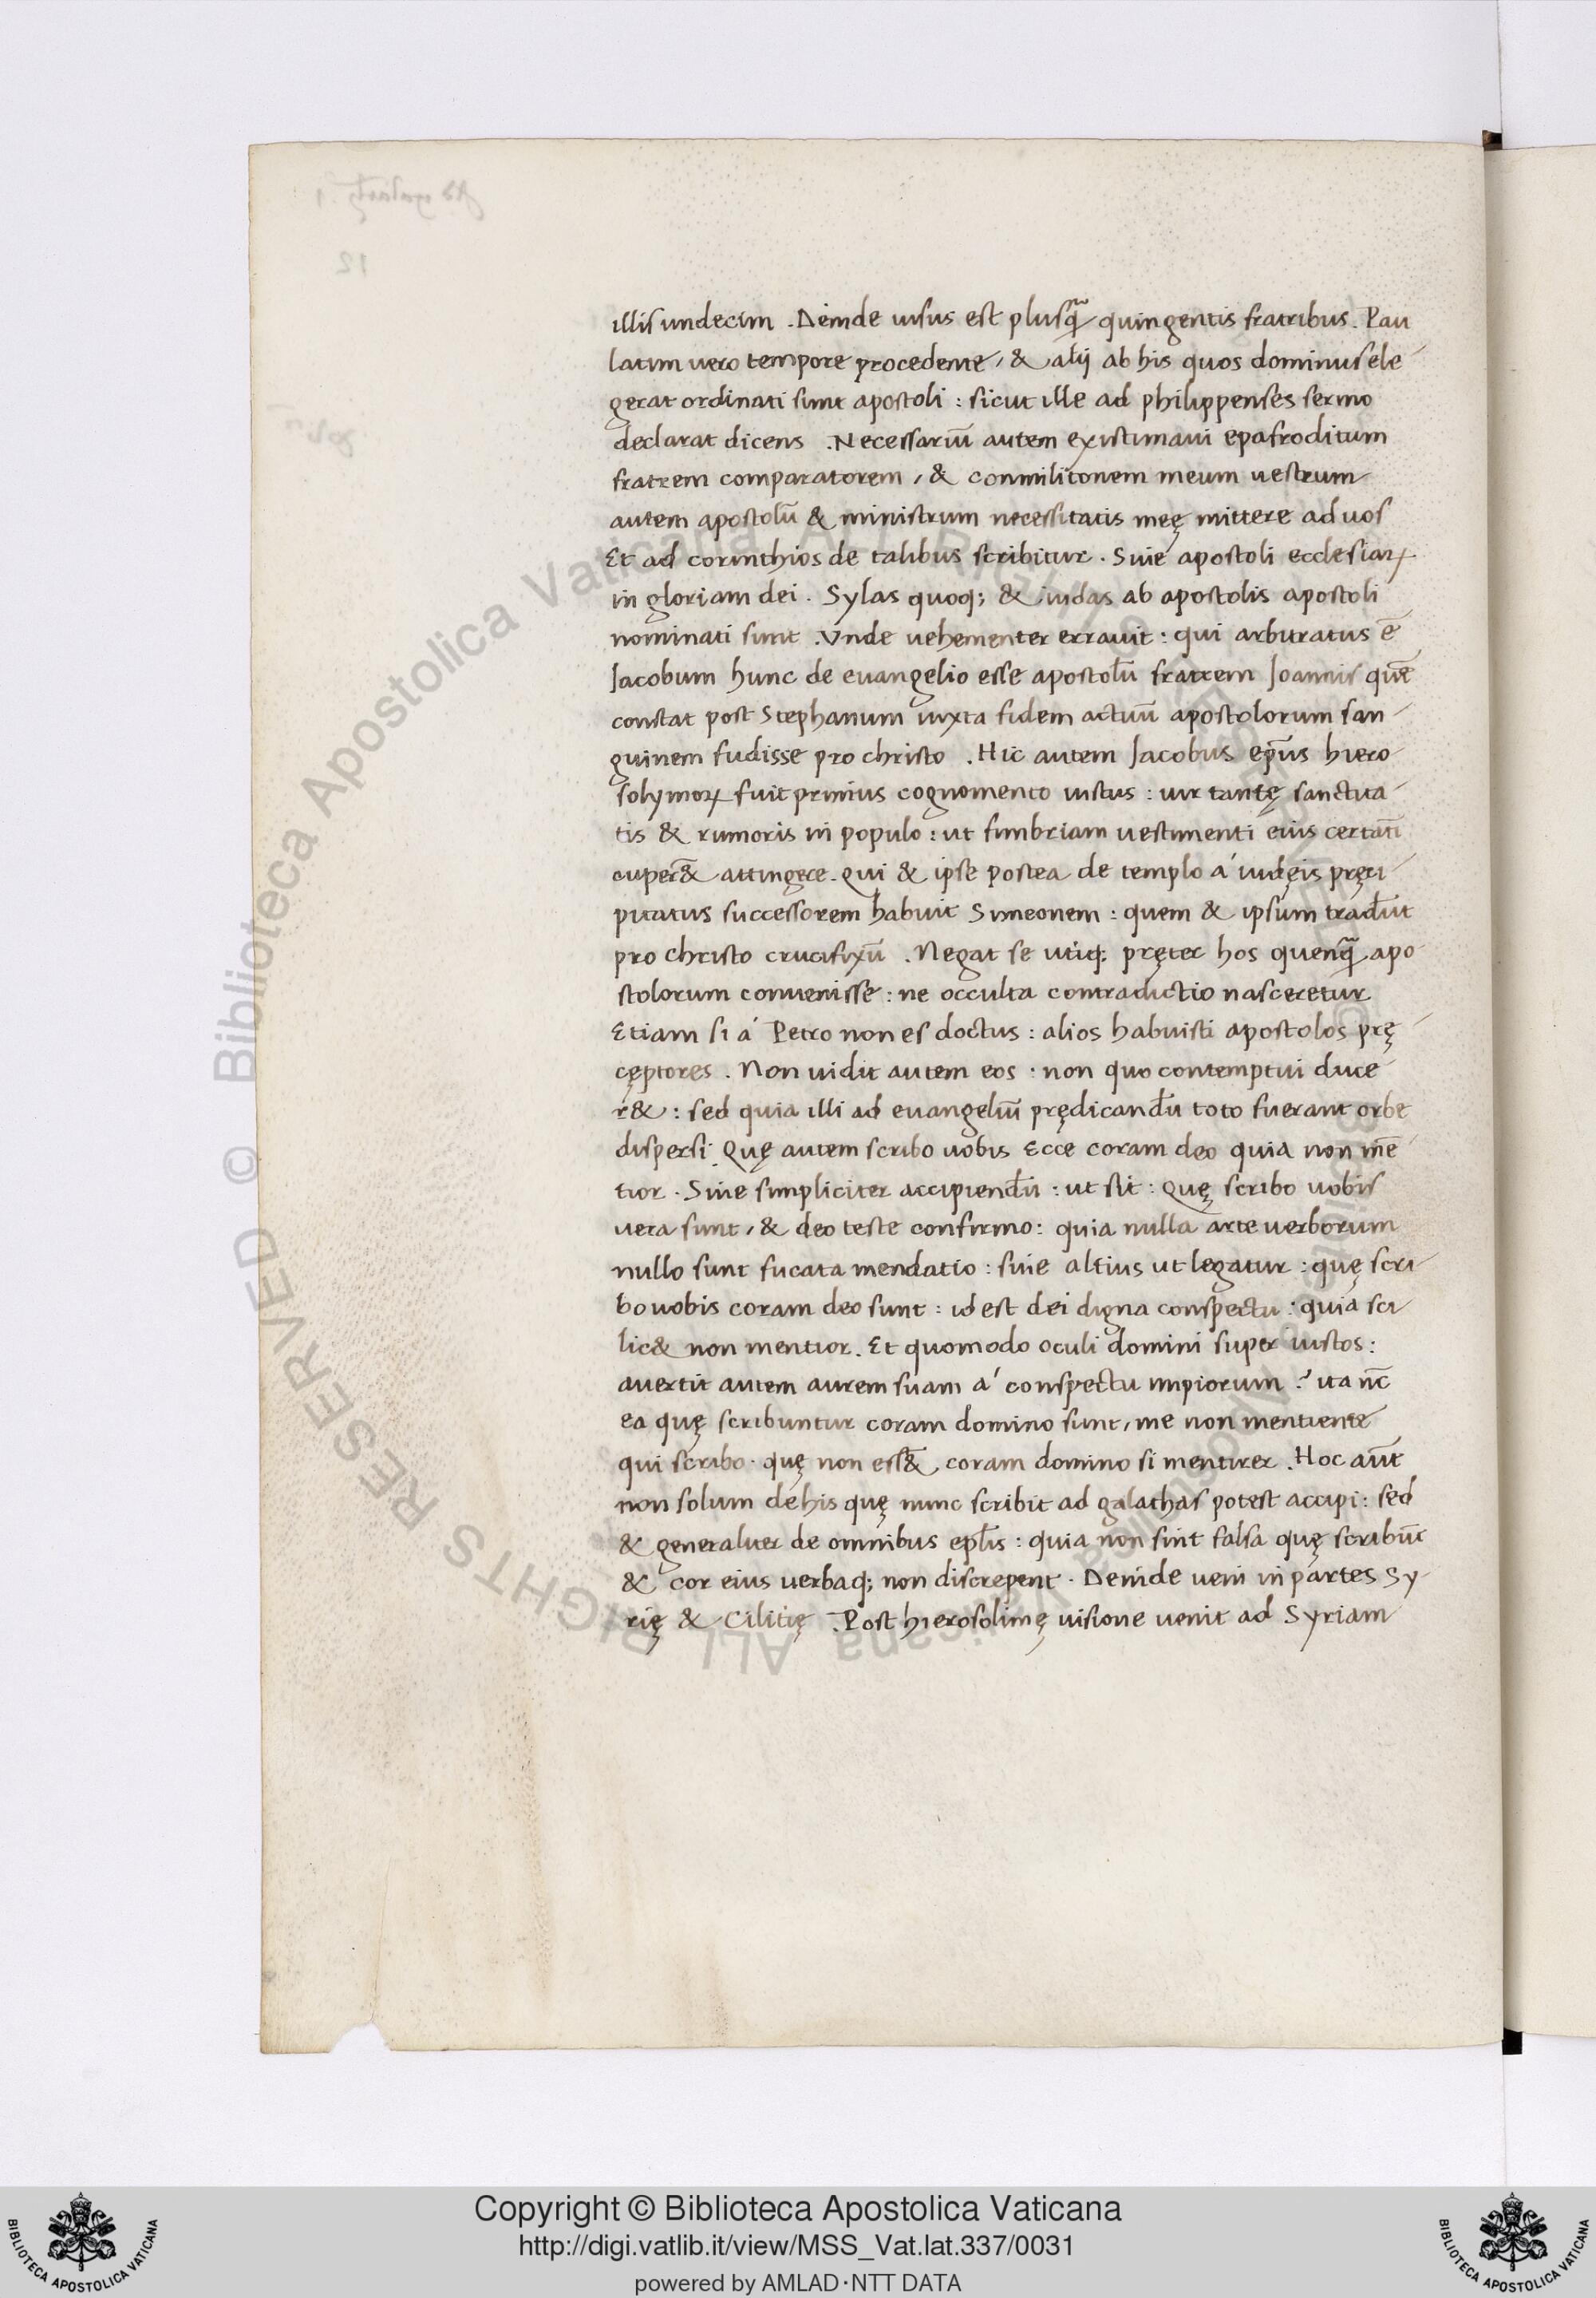 illis undecim . Deinde uisus est plusq̃ quingentis fratribus . Pau
latim uero tempore procedente, & alij ab his quos dominus ele-
gerat ordinati sunt apostoli : sicut ille ad philippenses sermo
declarat dicens . Necessariũ autem existimaui epafroditum
fratrem comparatorem, & conmilitonem meum uestrum
autem apostolũ & ministrum necessitatis meę mittere ad uos
Et ad corinthios de talibus scribitur . Siue apostoli ecclesiaꝝ
in gloriam dei . Sylas quoq; & iudas ab apostolis apostoli
nominati sunt . Vnde uehementer errauit : qui arbitratus ẽ
Jacobum hunc de euangelio esse apostolũ fratrem Joannis quẽ
constat post Stephanum iuxta fidem actuũ apostolorum san-
guinem fudisse pro christo . Hic autem Jacobus ep̃us hiero
solymoꝝ fuit primus cognomento iustus : uir tantę sanctita-
tis & rumoris in populo : ut fimbriam uestimenti eius certati
cuper̃& attingere . qui & ipse postea de templo á iudęis pręci-
pitatus successorem habuit Simeonem : quem & ipsum tradũt
pro christo crucifixũ . Negat se utiq; pręter hos quenq̃ apo
stolorum conuenisse : ne occulta contradictio nasceretur
Etiam si á Petro non es doctus : alios habuisti apostolos prę-
cęptores . Non uidit autem eos : non quo contemptui duce-
r& : sed quia illi ad euangeliũ prędicandũ toto fuerant orbe
dispersi . Quę autem scribo uobis Ecce coram deo quia non mẽ-
tior . Siue simpliciter accipiendũ : ut sit : Quę scribo uobis
uera sunt, & deo teste confirmo : quia nulla arte uerborum
nullo sunt fucata mendatio : siue altius ut legatur : quę scri-
bo uobis coram deo sunt : id est dei digna conspectu : quia sci-
lic& non mentior . Et quomodo oculi domini super iustos :
auertit autem aurem suam á conspectu impiorum ? ita nc̃
ea quę scribuntur coram domino sunt, me non mentiente
qui scribo . quę non ess̃& coram domino si mentirer . Hoc aũt
non solum de his quę nunc scribit ad galathas potest accipi : sed
& generaliter de omnibus epl̃is : quia non sint falsa quę scribũt
& cor eius uerbaq; non discrepent . Deinde ueni in partes Sy-
rię & Cilitię . Post hierosolimę uisione uenit ad Syriam
Copyright © Biblioteca Apostolica Vaticana
http://digi.vatlib.it/view/MSS_Vat.lat.337/0031
powered by AMLAD·NTT DATA
BIBLIOTECA APOSTOLICA VATICANA
BIBLIOTECA APOSTOLICA VATICANA
© Biblioteca Apostolica Vaticana ALL RIGHTS RESERVED